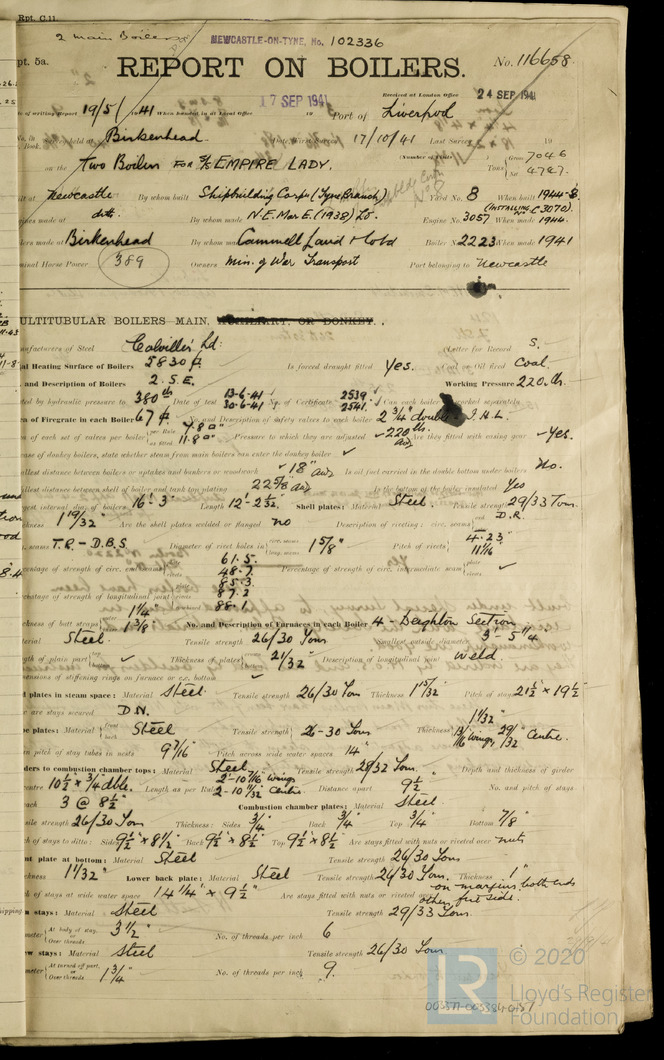 Rpt. C.11.
2 main Boilers NEWCASTLE-ON-TYNE, No. 102336
pt. 5a. REPORT ON BOILERS. No. 116658
17 SEP 1941 Received at London Office 24 SEP 1941
of writing Report 19/5/1941 When handed in at Local Office 19 Port of Liverpool
held at Birkenhead Date, First Survey 17/10/41 Last Survey 19
on the Two Boilers FOR S/S EMPIRE LADY. (Number of Tons Gross 7046
Tons Net 4787.
Newcastle By whom built Shipbuilding Corpn (Tyne Branch) Yard No. 8 When built 1944-8.
made at dtto. By whom made N.E. Mar E. (1938) Ld. Engine No. 3057 (INSTALLING No C 3070). When made 1944.
made at Birkenhead By whom made Cammell Laird & Co Ld Boiler No 2223 When made 1941
Nominal Horse Power 389 Owners Min. of War Transport Port belonging to Newcastle
MULTITUBULAR BOILERS MAIN, AUXILIARY, OR DONKEY.
Manufacturers of Steel Colvilles Ld: (Letter for Record S.
Total Heating Surface of Boilers 5830 # Is forced draught fitted Yes. Coal or Oil fired Coal.
and Description of Boilers 2. S.E. Working Pressure 220 lb.
Tested by hydraulic pressure to 380 lb Date of test 13-6-41 30-6-41 No. of Certificate 2539 2541 Can each boiler be worked separately
Area of Firegrate in each Boiler 67 # No. and Description of safety valves to each boiler 2 3/4" double I.H.L.
Area of each set of valves per boiler per Rule 7.8 □" as fitted 11.8 □" Pressure to which they are adjusted 220 lb. Are they fitted with easing gear Yes.
In case of donkey boilers, state whether steam from main boilers can enter the donkey boiler ✓
Smallest distance between boilers or uptakes and bunkers or woodwork 18" Is oil fuel carried in the double bottom under boilers No.
Smallest distance between shell of boiler and tank top plating 22 5/8" Is the bottom of the boiler insulated Yes
Largest internal dia. of boilers 16'-3" Length 12'-2 5/32" Shell plates: Material Steel Tensile strength 29/33 Tons.
1 19/32" Are the shell plates welded or flanged no Description of riveting: circ. seams D.R.
long. seams T.R-D.B.S. Diameter of rivet holes in circ. seams long. seams 1 5/8" Pitch of rivets 4.23" 11 1/16
Percentage of strength of circ. end seams 61.5. 48.7 Percentage of strength of circ. intermediate seam plate rivets ✓
Percentage of strength of longitudinal joint 85.3 87.2 88.1
Thickness of butt straps 1 1/4" 1 3/8 No. and Description of Furnaces in each Boiler 4 - Deighton Section
Material Steel. Tensile strength 26/30 Tons Smallest outside diameter 3'-5 1/4"
Length of plain part ✓ Thickness of plates 21/32" Description of longitudinal joint Weld.
Dimensions of stiffening rings on furnace or c.c. bottom ✓
End plates in steam space: Material Steel Tensile strength 26/30 Ton Thickness 1 15/32" Pitch of stays 21 1/2" x 19 1/2"
How are stays secured D.N.
Tube plates: Material Steel Tensile strength 26-30 Tons Thickness 1 1/32" 13/16 wings, 29/32" Centre.
Mean pitch of stay tubes in nests 9 7/16" Pitch across wide water spaces 14"
Girders to combustion chamber tops: Material Steel Tensile strength 28/32 Tons. Depth and thickness of girder
at centre 10 1/2" x 3/4" dble. Length as per Rule 2-10 7/16 wings 2-10 11/32" centre. Distance apart 9 1/2" No. and pitch of stays
in each 3 @ 8 1/2" Combustion chamber plates: Material Steel
Tensile strength 26/30 Ton Thickness: Sides 3/4" Back 3/4" Top 3/4" Bottom 7/8"
Pitch of stays to ditto: Sides 9 1/2" x 8 1/2" Back 9 1/2" x 8 1/2" Top 9 1/2" x 8 1/2" Are stays fitted with nuts or riveted over nuts
Front plate at bottom: Material Steel Tensile strength 26/30 Tons
Thickness 1 1/32" Lower back plate: Material Steel Tensile strength 26/30 Tons. Thickness 1"
Pitch of stays at wide water space 14 1/4" x 9 1/2" Are stays fitted with nuts or riveted over on margins both ends
others fire side.
Main stays: Material Steel Tensile strength 29/33 Tons.
Diameter At body of stay, or Over threads 3 1/2" No. of threads per inch 6
Screw stays: Material Steel Tensile strength 26/30 Tons
Diameter At turned off part, or Over threads 1 3/4" No. of threads per inch 9.
© 2020
LR Lloyd's Register
Foundation